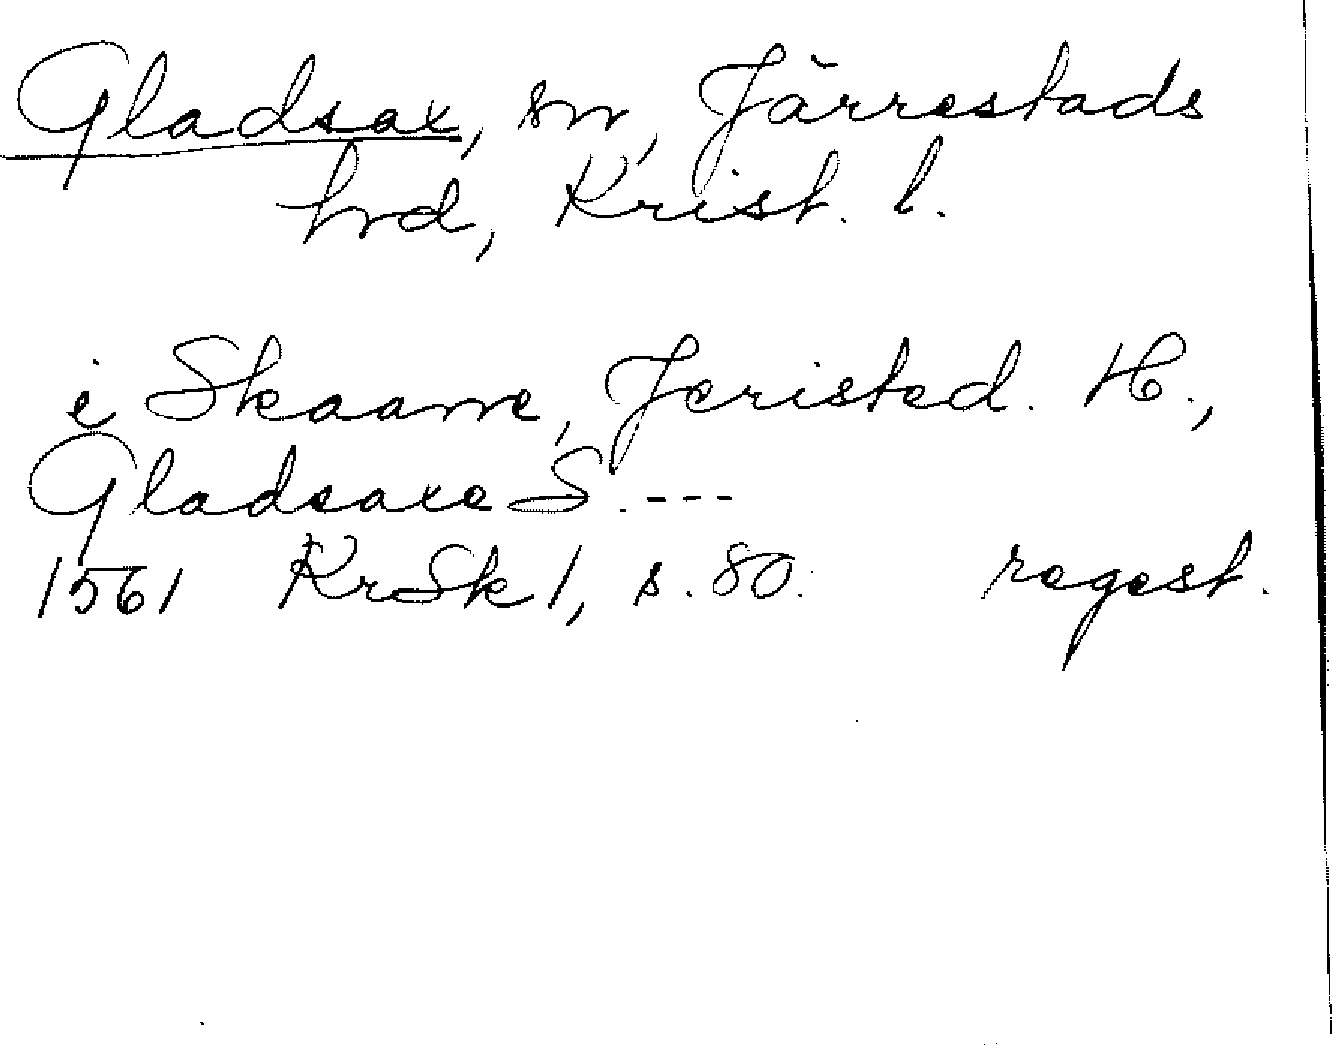 Gladsax, sn, Järrestads
hrd, Krist. l.
i Skaane, Jeristed. H.,
Gladsaxe S. ---
1561 KrSk 1, s. 80. regest.